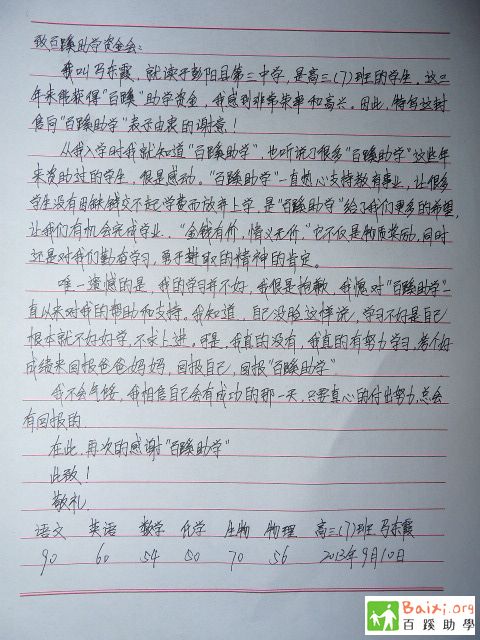 致百蹊助学资金会:
我叫马东霞,就读于彭阳县第三中学,是高三(7)班的学生,这三
年来能获得"百蹊"助学资金,我感到非常荣幸和高兴。因此,特写这封
信向"百蹊助学"表示由衷的谢意!
从我入学时我就知道"百蹊助学",也听说了很多"百蹊助学"这些年
来资助过的学生,很是感动。"百蹊助学"一直热心支持教育事业,让很多
学生没有因缺钱交不起学费而放弃上学,是"百蹊助学"给了我们更多的希望,
让我们有机会完成学业。"金钱有价,情义无价,"它不仅是物质奖励,同时
还是对我们勤奋学习,勇于进取的精神的肯定。
唯一遗憾的是,我的学习并不好,我很是抱歉,我愧对"百蹊助学"一
直以来对我的帮助和支持,我知道,自己没脸这样说,学习不好是自己
根本就不好好学,不求上进,可是,我真的没有,我真的有努力学习,考个好
成绩来回报爸爸妈妈,回报自己,回报"百蹊助学"
我不会气馁,我相信自己会有成功的那一天,只要真心的付出努力,总会
有回报的.
在此,再次的感谢"百蹊助学"
此致!
敬礼.
语文 英语 数学 化学 生物 物理 高三(7)班 马东霞
90 60 54 50 70 56 2013年9月10日
Baixi.org
百蹊助學